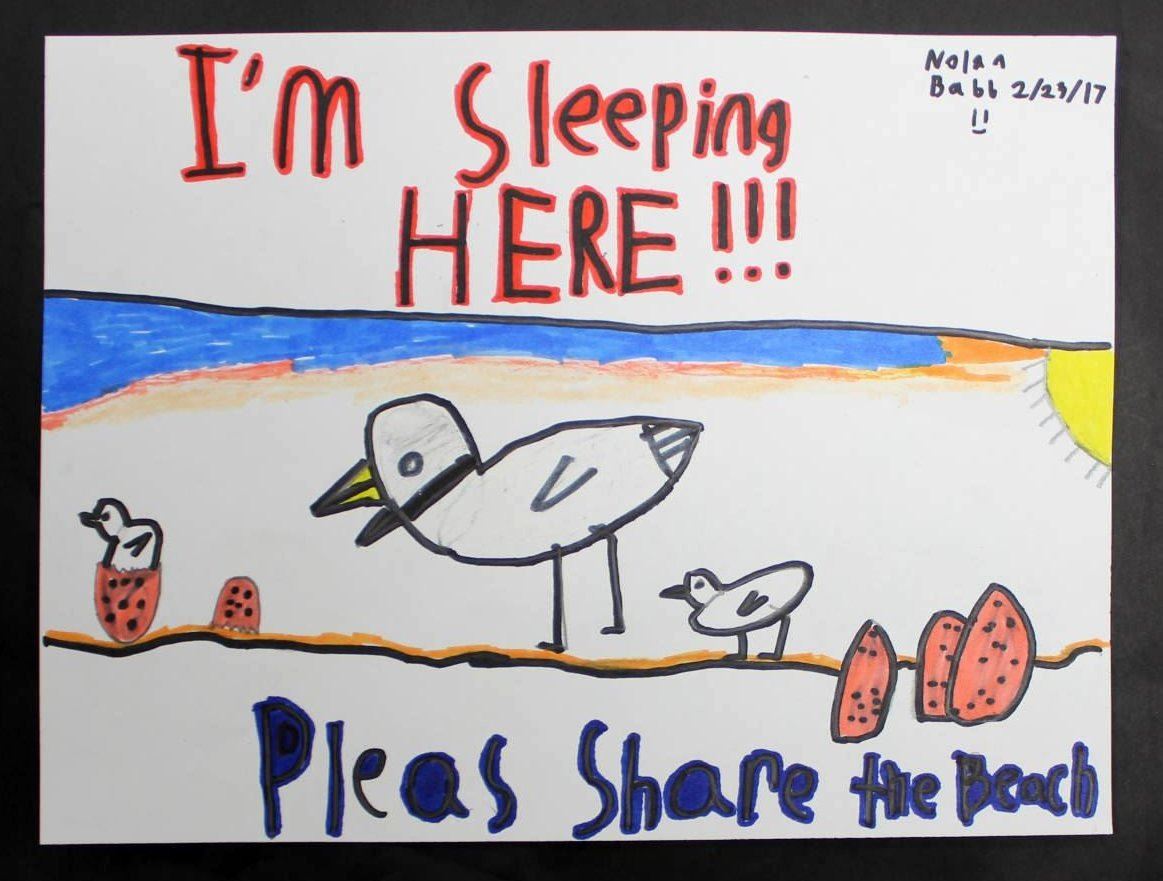 I'm Sleeping
HERE!!!
Nolan
Babb 2/23/17
Pleas Share the Beach